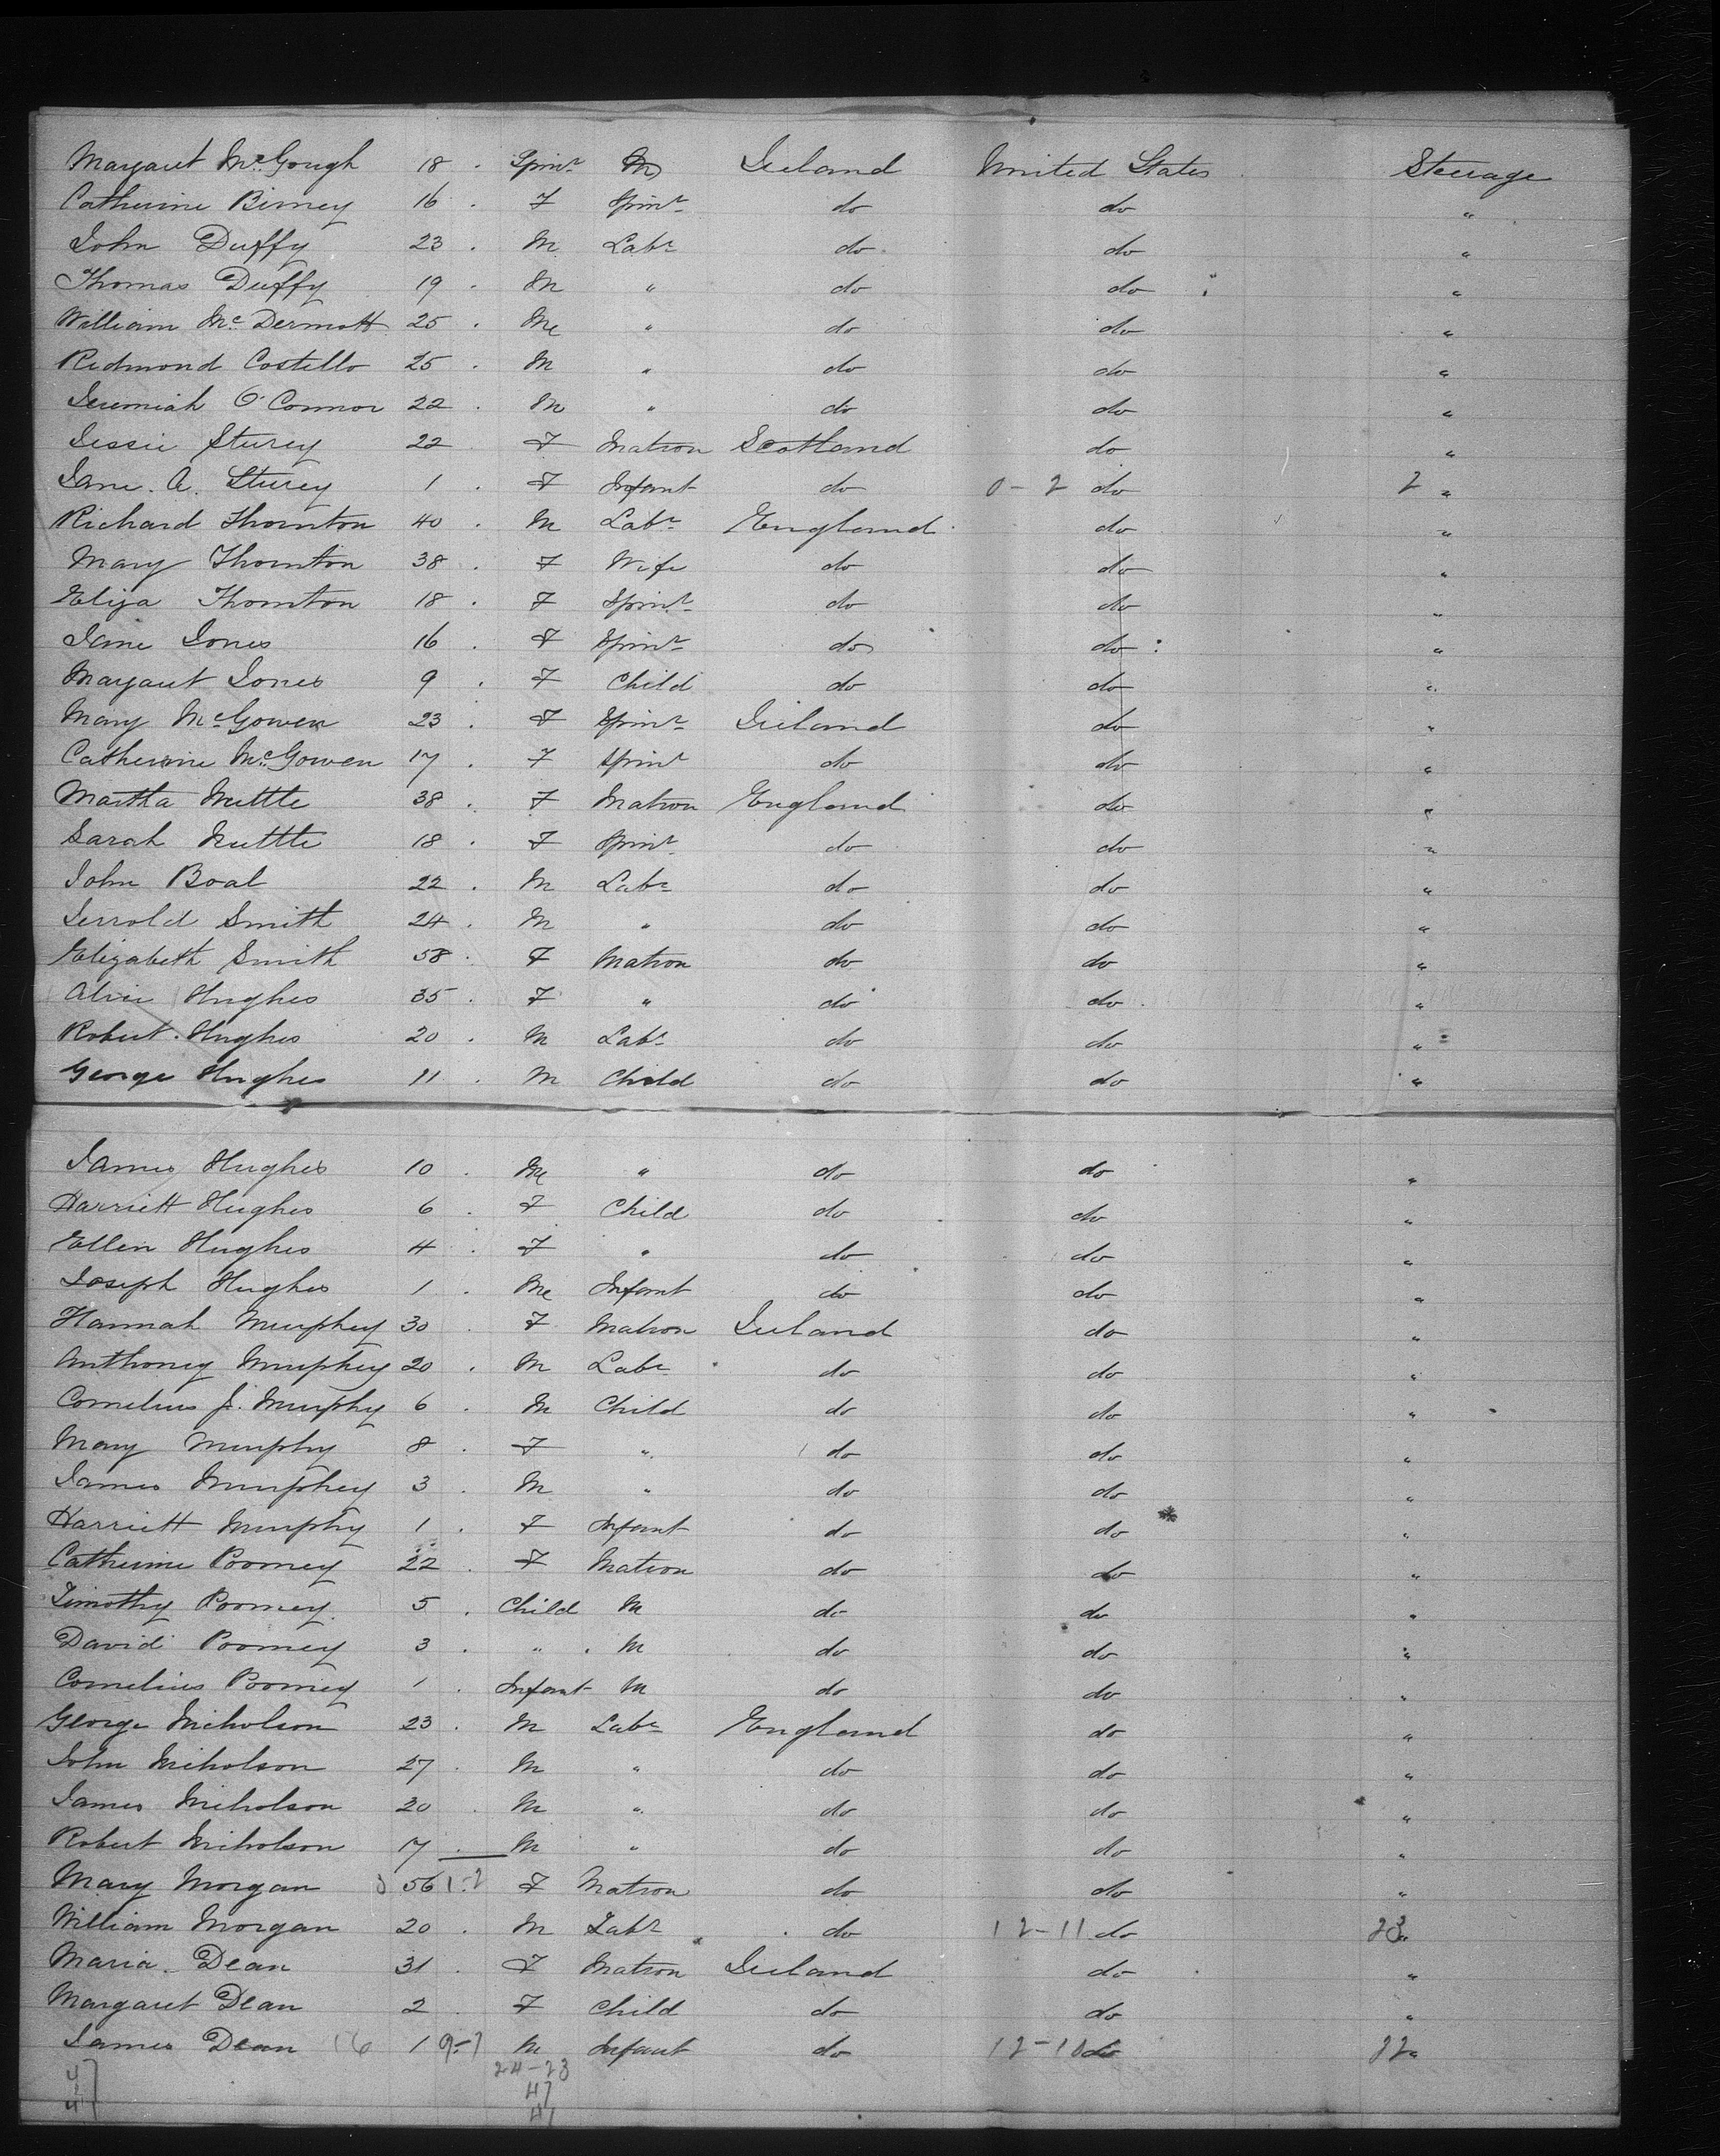 Margaret McGough 18 . Spinr M Ireland United States Steerage
Catherine Birney 16 . F Spinr do do "
John Duffy 23 . M Labr do do "
Thomas Duffy 19 . M " do do "
William McDermott 25 . M " do do "
Redmond Costello 25 . M " do do "
Jeremiah O'Connor 22 . M " do do "
Jessie Sturey 22 F Matron Scotland do "
Jane. A. Sturey 1 . F Infant do 0-2 do 2 "
Richard Thornton 40 . M Labr England do "
Mary Thornton 38 . F Wife do do "
Eliza Thornton 18 . F Spinr do do "
Jane Jones 16 . F Spinr do do "
Margaret Jones 9 . F Child do do "
Mary McGowen 23 . F Spinr Ireland do "
Catherine McGowen 17 . F Spinr do do "
Martha Nuttle 38 . F Matron England do "
Sarah Nuttle 18 . F Spinr do do "
John Boal 22 . M Labr do do "
Jerrold Smith 24 . M " do do "
Elizabeth Smith 58 . F Matron do do "
Alice Hughes 35 . F " do do "
Robert Hughes 20 . M Labr do do "
George Hughes 11 . M Child do do "
James Hughes 10 . M " do do "
Harriett Hughes 6 . F Child do do "
Ellen Hughes 4 . F " do do "
Joseph Hughes 1 . M Infant do do "
Hannah Murphey 30 . F Matron Ireland do "
Anthoney Murphey 20 . M Labr do do "
Cornelius J. Murphy 6 . M Child do do "
Mary Murphy 8 . F " do do "
James Murphey 3 . M " do do "
Harriett Murphy 1 . F Infant do do "
Catherine Roomey 22 . F Matron do do "
Timothy Roomey 5 . Child M do do "
David Roomey 3 . " . M do do "
Cornelius Roomey 1 . Infant M do do "
George Nicholson 23 . M Labr England do "
John Nicholson 27 . M " do do "
James Nicholson 20 . M " do do "
Robert Nicholson 17 . M " do do "
Mary Morgan 56 1-2 F Matron do do "
William Morgan 20 . M Labr do 12-11 do 23 "
Maria Dean 31 . F Matron Ireland do "
Margaret Dean 2 F Child do do "
James Dean 16 1 9-7 M Infant do 12-10 do 22 "
24-23
47 47
41